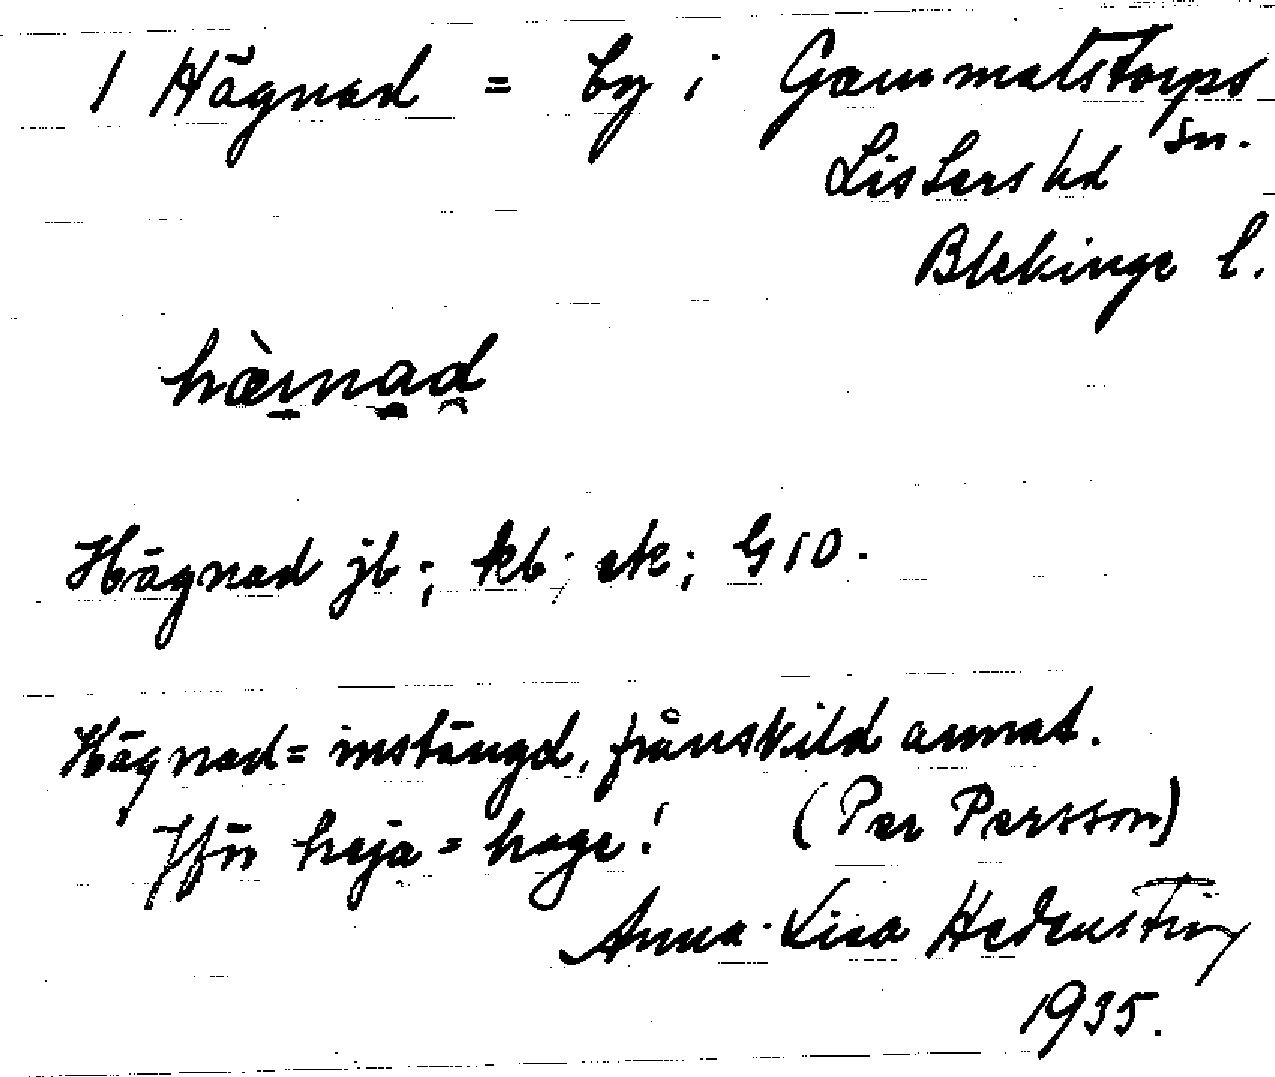 1 Hägnad = by i Gammalstorps
sn.
Listers hd
Blekinge l.
hæ̀rnad
Hägnad jb; kb; ek; G10.
Hägnad = instängd, frånskild annat.
Jfr heja = hage! (Per Persson)
Anna-Lisa Hedenstierna
1935.